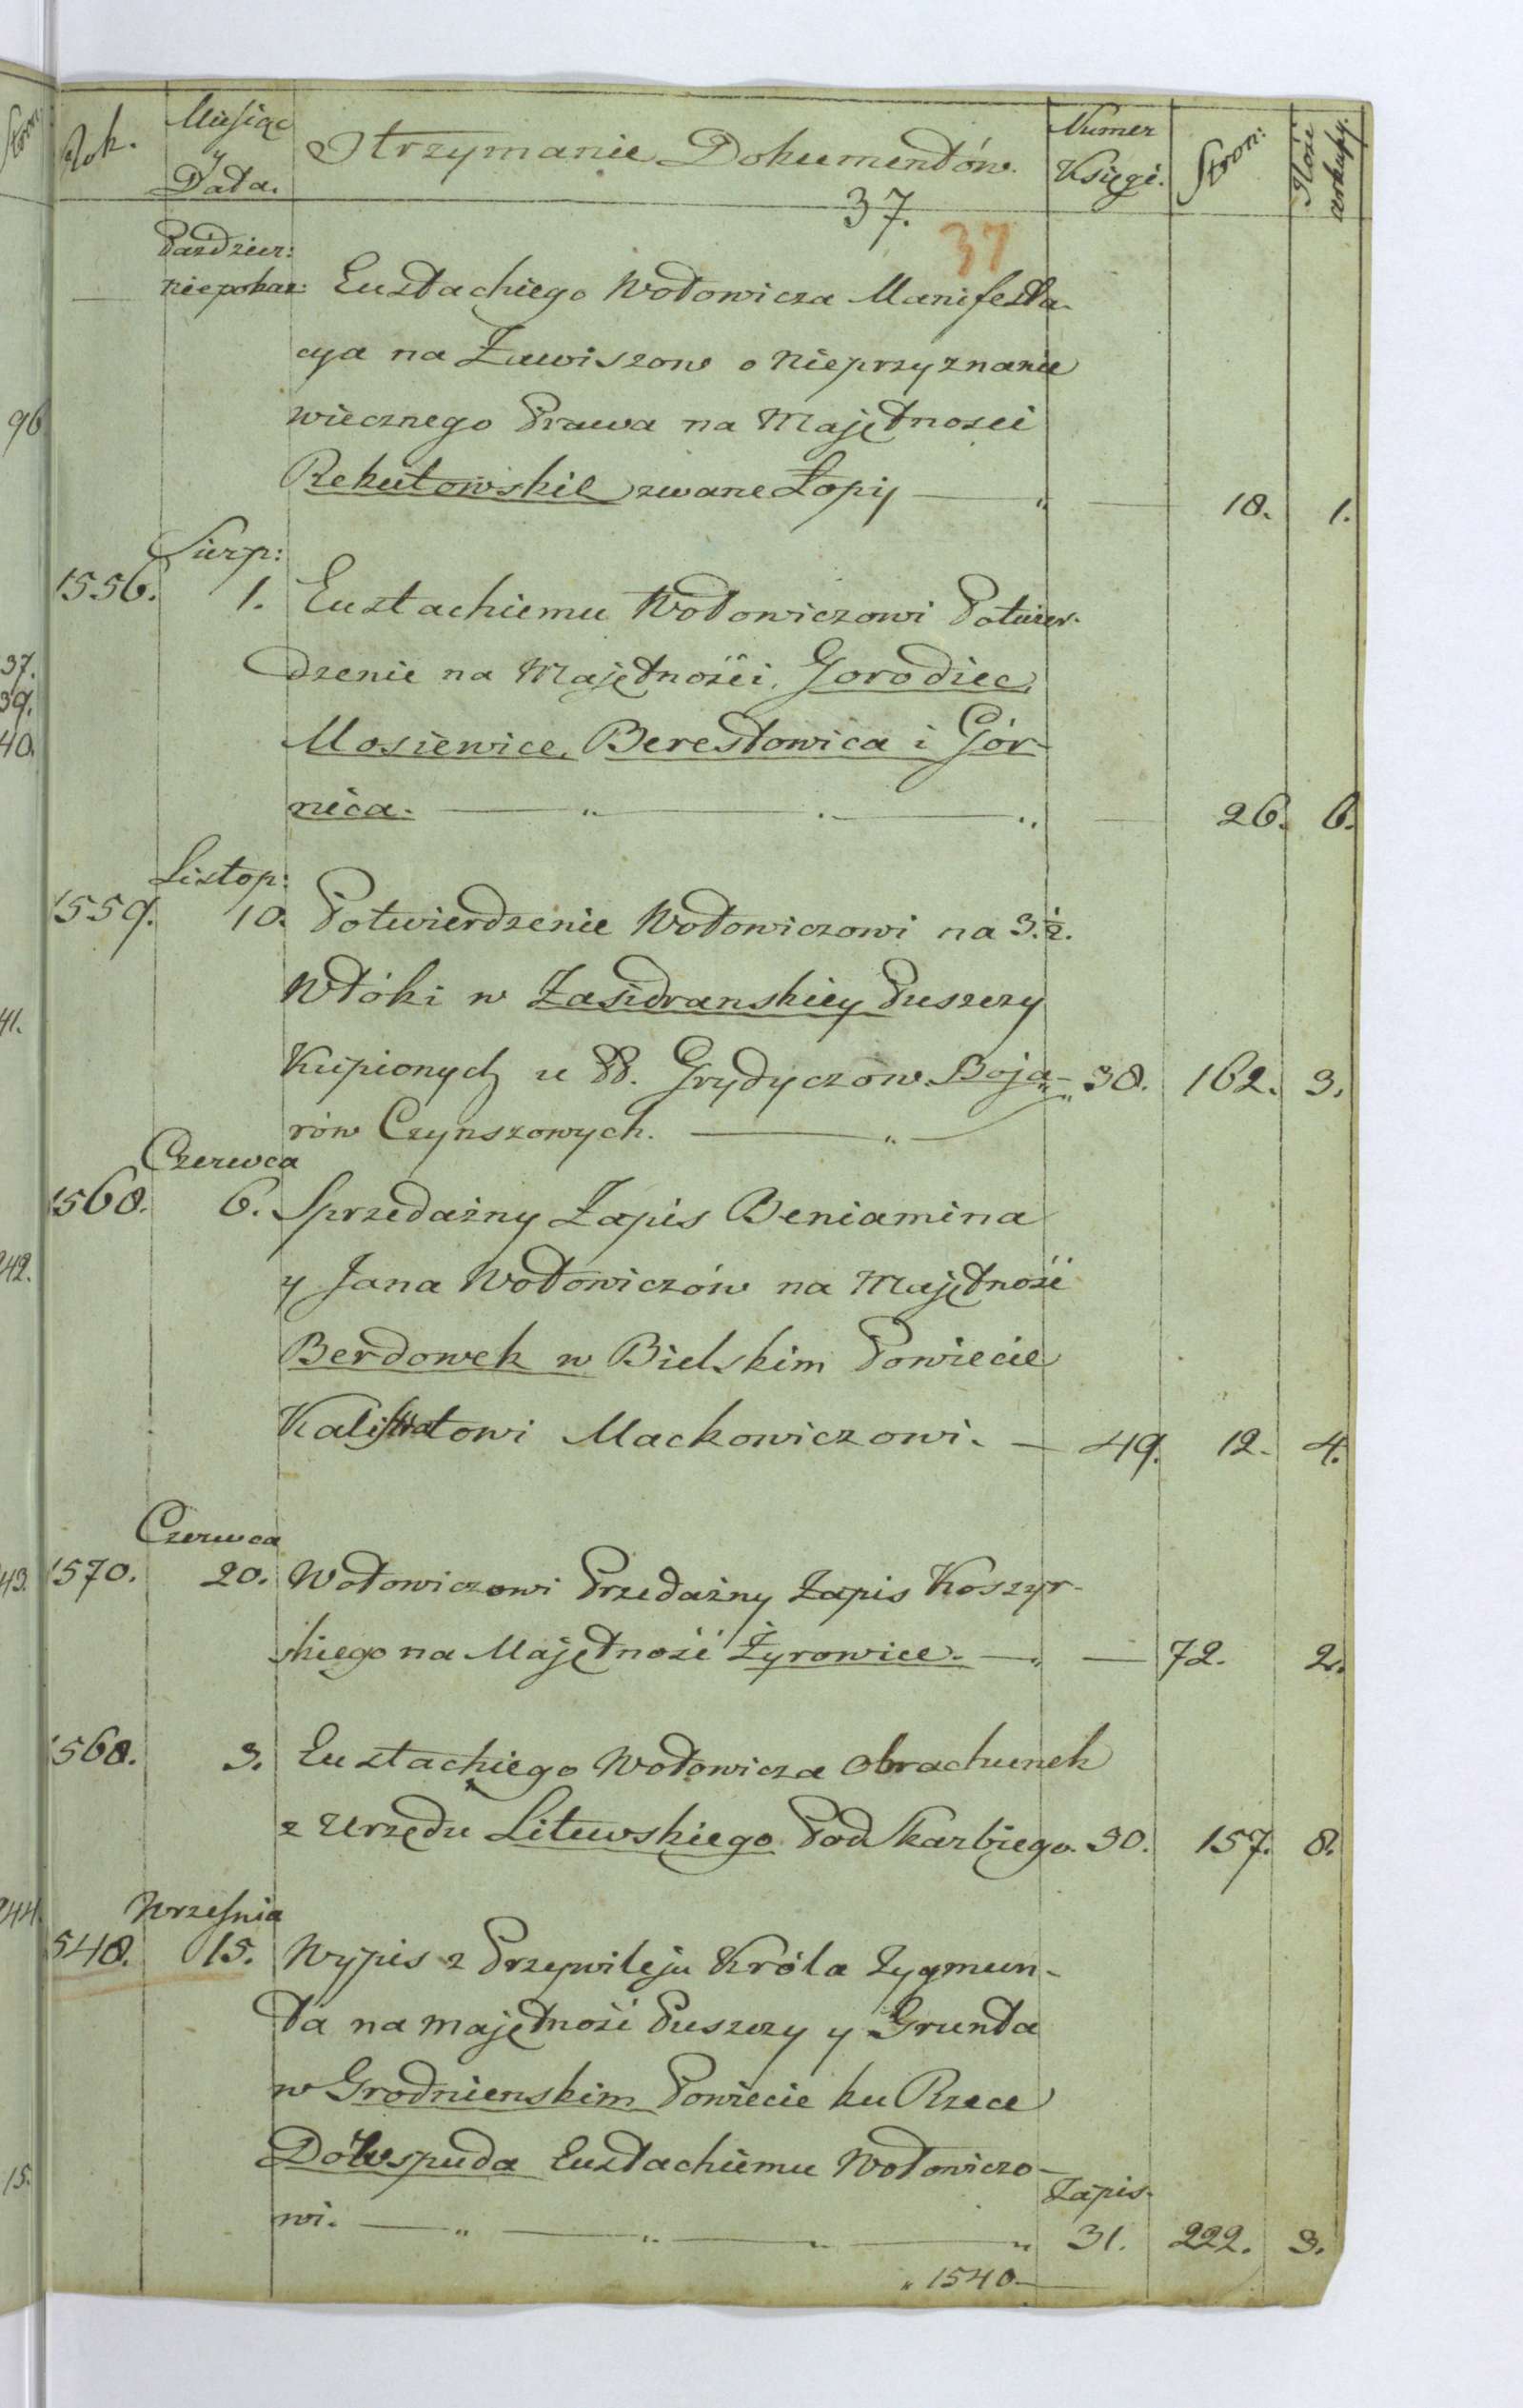 Rok.
Miesiąc
y
Data.
Otrzymanie Dokumentów.
Numer
Księgi.
Stron:
Ilość
arkuszy.
37.
37
Paździer:
niepokaz: Eustachiego Wołowicza Manifesta-
cya na Zawiszow o nieprzyznanie
wiecznego Prawa na Majętnosci
Rekutowskie zwane Łopij — 18. 1.
Sierp:
1556. 1. Eustachiemu Wołowiczowi Potwier-
dzenie na Majętnośći, Gorodiec,
Mosiewice, Berestowica i Gór-
nica. — 26. 6.
Listop:
1559. 10. Potwierdzenie Wołowiczowi na 3.½.
Włóki w Zasidranskiey Puszczy
Kupionych u PP. Grydyczow Boja- 38. 162. 3.
rów Czynszowych.
Czerwca
1568. 6. Sprzedażny Zapis Beniamina
y Jana Wołowiczów na Majętność
Berdowek w Bielskim Powiecie
Kalistratowi Mackowiczowi. — 49. 12. 4.
Czerwca
1570. 20. Wołowiczowi Przedażny Zapis Koszyr-
skiego na Majętność Żyrowice. — 72. 2.
1568. 3. Eustachiego Wołowicza Obrachunek
z Urzędu Litewskiego Podskarbiego. 30. 157. 8.
Września
548. 15. Wypis z Przywileju Króla Zygmun-
ta na majętność Puszczy y Grunta
w Grodnienskim Powiecie ku Rzece
Dowspuda Eustachiemu Wołowiczo-
Zapis.
wi. — 31. 222. 3.
„ 1540 —
96
37.
39.
40.
41.
242.
43.
244.
15.